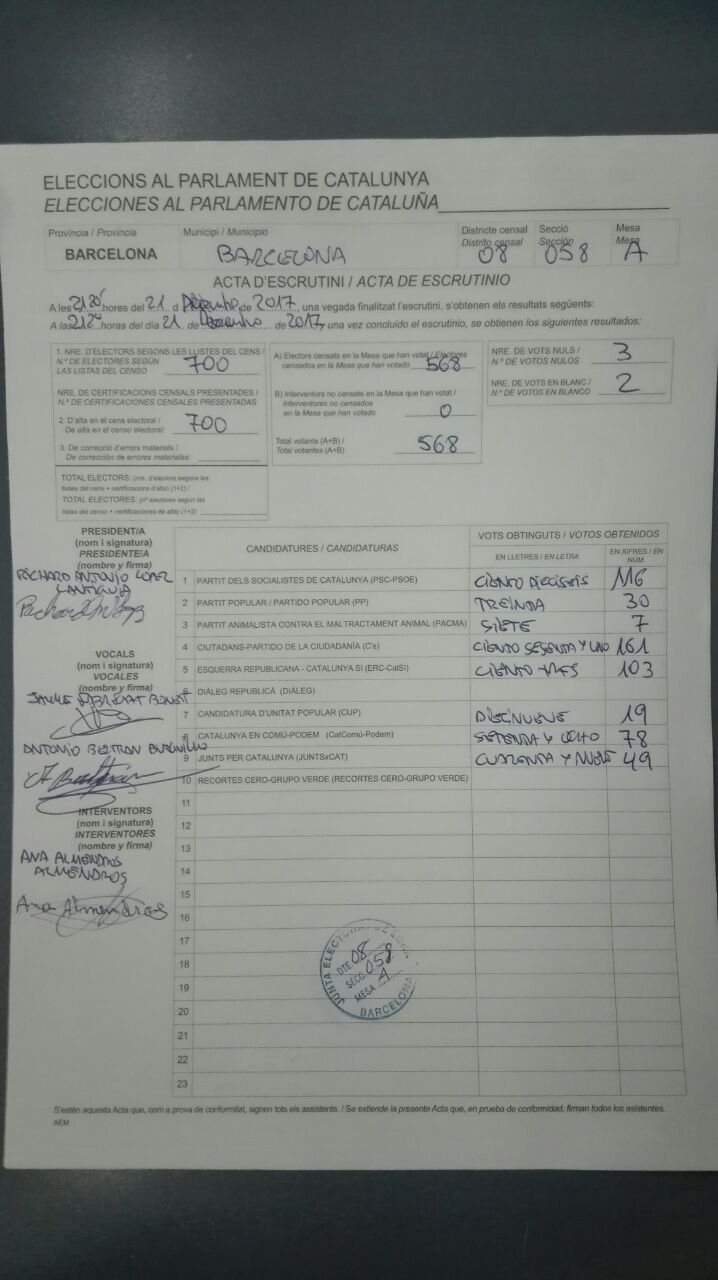 ELECCIONS AL PARLAMENT DE CATALUNYA
ELECCIONES AL PARLAMENTO DE CATALUÑA
Província / Provincia Municipi / Municipio Districte censal Secció Mesa
Distrito censal Sección Mesa
BARCELONA BARCELONA 08 058 A
ACTA D'ESCRUTINI / ACTA DE ESCRUTINIO
A les hores del 21 d de 2017, una vegada finalitzat l'escrutini, s'obtenen els resultats següents:
A las horas del día 21 de de 2017, una vez concluido el escrutinio, se obtienen los siguientes resultados:
1. NRE. D'ELECTORS SEGONS LES LLISTES DEL CENS /
N.º DE ELECTORES SEGÚN
LAS LISTAS DEL CENSO 700
NRE. DE CERTIFICACIONS CENSALS PRESENTADES /
N.º DE CERTIFICACIONES CENSALES PRESENTADAS
2. D'alta en el cens electoral /
De alta en el censo electoral: 700
3. De correcció d'errors materials /
De corrección de errores materiales:
TOTAL ELECTORS: (nre. d'electors segons les
llistes del cens + certificacions d'alta) (1+2) /
TOTAL ELECTORES: (nº electores según las
listas del censo + certificaciones de alta) (1+2)
A) Electors censats en la Mesa que han votat / Electores
censados en la Mesa que han votado 568
B) Interventors no censats en la Mesa que han votat /
Interventores no censados
en la Mesa que han votado 0
Total votants (A+B) /
Total votantes (A+B) 568
NRE. DE VOTS NULS /
N.º DE VOTOS NULOS 3
NRE. DE VOTS EN BLANC /
N.º DE VOTOS EN BLANCO 2
PRESIDENT/A
(nom i signatura)
PRESIDENTE/A
(nombre y firma)
RICHARD ANTONIO LOPEZ
VOCALS
(nom i signatura)
VOCALES
(nombre y firma)
ANTONIO BELTRAN
INTERVENTORS
(nom i signatura)
INTERVENTORES
(nombre y firma)
ANA ALMENDROS
ALMENDROS
Ana Almendros
CANDIDATURES / CANDIDATURAS VOTS OBTINGUTS / VOTOS OBTENIDOS
EN LLETRES / EN LETRA EN XIFRES / EN NÚM.
1 PARTIT DELS SOCIALISTES DE CATALUNYA (PSC-PSOE) CIENTO DIECISEIS 116
2 PARTIT POPULAR / PARTIDO POPULAR (PP) TREINTA 30
3 PARTIT ANIMALISTA CONTRA EL MALTRACTAMENT ANIMAL (PACMA) SIETE 7
4 CIUTADANS-PARTIDO DE LA CIUDADANÍA (C's) CIENTO SESENTA Y UNO 161
5 ESQUERRA REPUBLICANA - CATALUNYA SÍ (ERC-CatSí) CIENTO TRES 103
6 DIÀLEG REPUBLICÀ (DIÀLEG)
7 CANDIDATURA D'UNITAT POPULAR (CUP) DIECINUEVE 19
8 CATALUNYA EN COMÚ-PODEM (CatComú-Podem) SETENTA Y OCHO 78
9 JUNTS PER CATALUNYA (JUNTSxCAT) CUARENTA Y NUEVE 49
10 RECORTES CERO-GRUPO VERDE (RECORTES CERO-GRUPO VERDE)
11
12
13
14
15
16
17
18
19
20
21
22
23
JUNTA ELECTORAL DE ZONA
DTE. 08
SECC. 058
MESA A
BARCELONA
S'estén aquesta Acta que, com a prova de conformitat, signen tots els assistents. / Se extiende la presente Acta que, en prueba de conformidad, firman todos los asistentes.
AEM